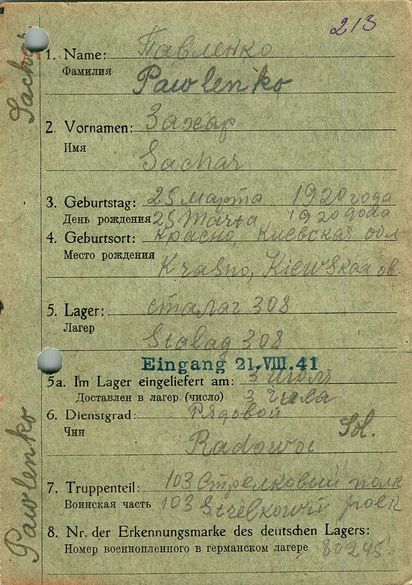 213
1. Name: Павленко
Фамилия
Pawlenko
2. Vornamen: Захар
Имя
Sachar
3. Geburtstag: 25 марта 1920 года
День рождения 25 Marta 1920 goda
4. Geburtsort: Красно, Киевская обл
Место рождения
Krasno, Kiewskaa ob
5. Lager: сталаг 308
Лагер
Stalag 308
Eingang 21.VIII.41
5a. Im Lager eingeliefert am: 3 июля
Доставлен в лагер (число) 3
6. Dienstgrad: Рядовой
Чин Sol.
Radowoi
7. Truppenteil: 103 Стрелковый полк
Воинская часть 103 Strelkowi polk
8. Nr. der Erkennungsmarke des deutschen Lagers:
Номер военнопленного в германском лагере 80245
Sachar
Pawlenko